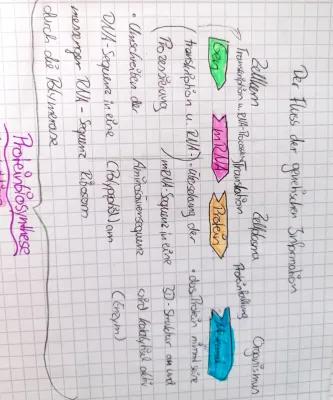 Der Fluss der genetischen Information
Zellkern Zellplasma Organismus
Transkription u. RNA-Prozessierung Translation Proteinfaltung
Gen mRNA Protein
(Transkription u. RNA-
Prozessierung)
• Umschreiben der
DNA-Sequenz in eine
messenger RNA-Sequenz
durch die Polymerase
• Übersetzung der
mRNA-Sequenz in eine
Aminosäuresequenz
(Polypeptid) am
Ribosom
• das Protein nimmt seine
3D-Struktur an und
wird katalytisch aktiv
(Enzym)
Proteinbiosynthese